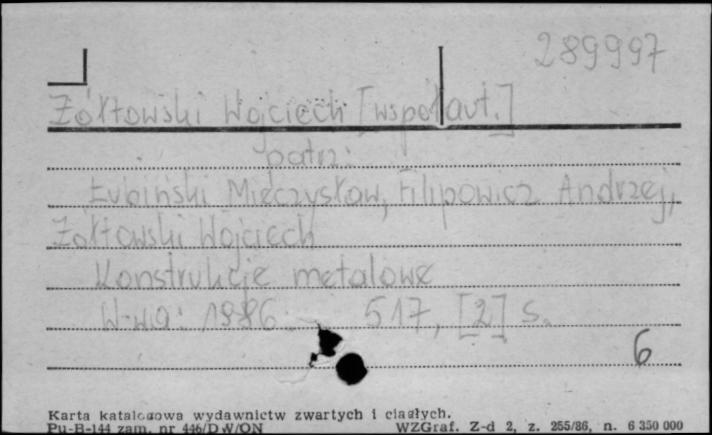 289997
Żółtowski Wojciech [współaut.]
patrz:
Łubiński Mieczysław, Filipowicz Andrzej,
Żółtowski Wojciech
Konstrukcje metalowe
W-wa: 1986. 517, [2] s.
6
Karta katalogowa wydawnictw zwartych i ciągłych.
Pu-B-144 zam. nr 446/DW/ON WZGraf. Z-d 2, z. 255/86, n. 6 350 000